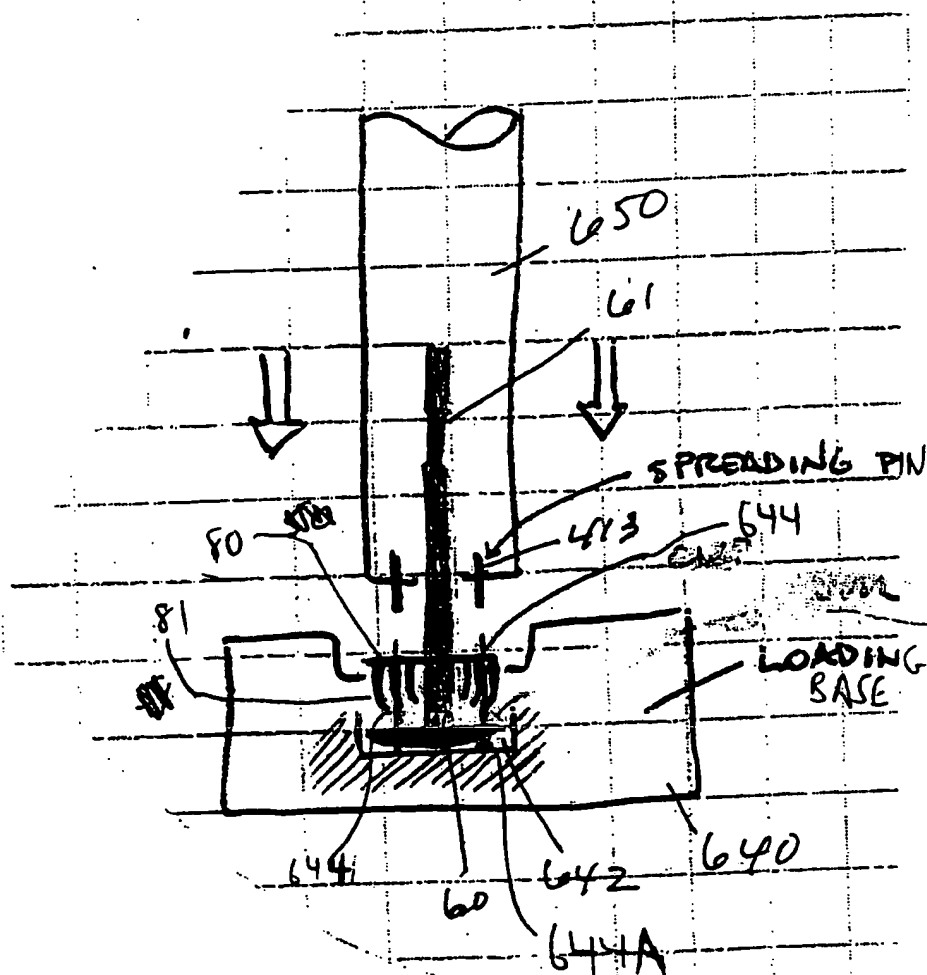 650
61
SPREADING PIN
80
413
644
81
LOADING
BASE
640
644i
60
642
644A